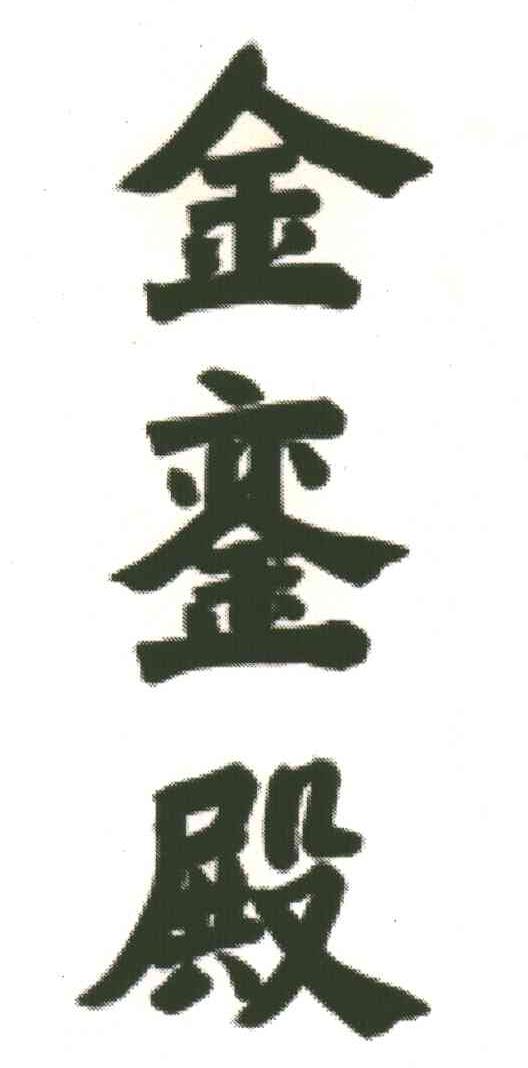 金銮殿